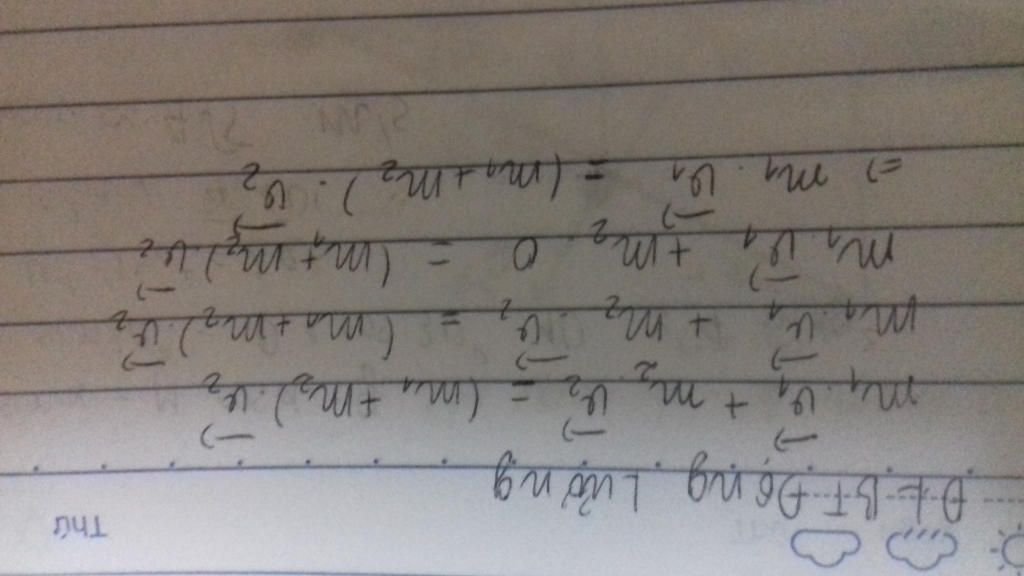 Thứ
ĐLBT Động Lượng
m₁.v⃗₁ + m₂.v⃗₂ = (m₁+m₂).v⃗₂
m₁.v⃗₁ + m₂.v⃗₂ = (m₁+m₂).v⃗₂
m₁.v⃗₁ + m₂.0 = (m₁+m₂).v⃗₂
=> m₁.v⃗₁ = (m₁+m₂).v⃗₂